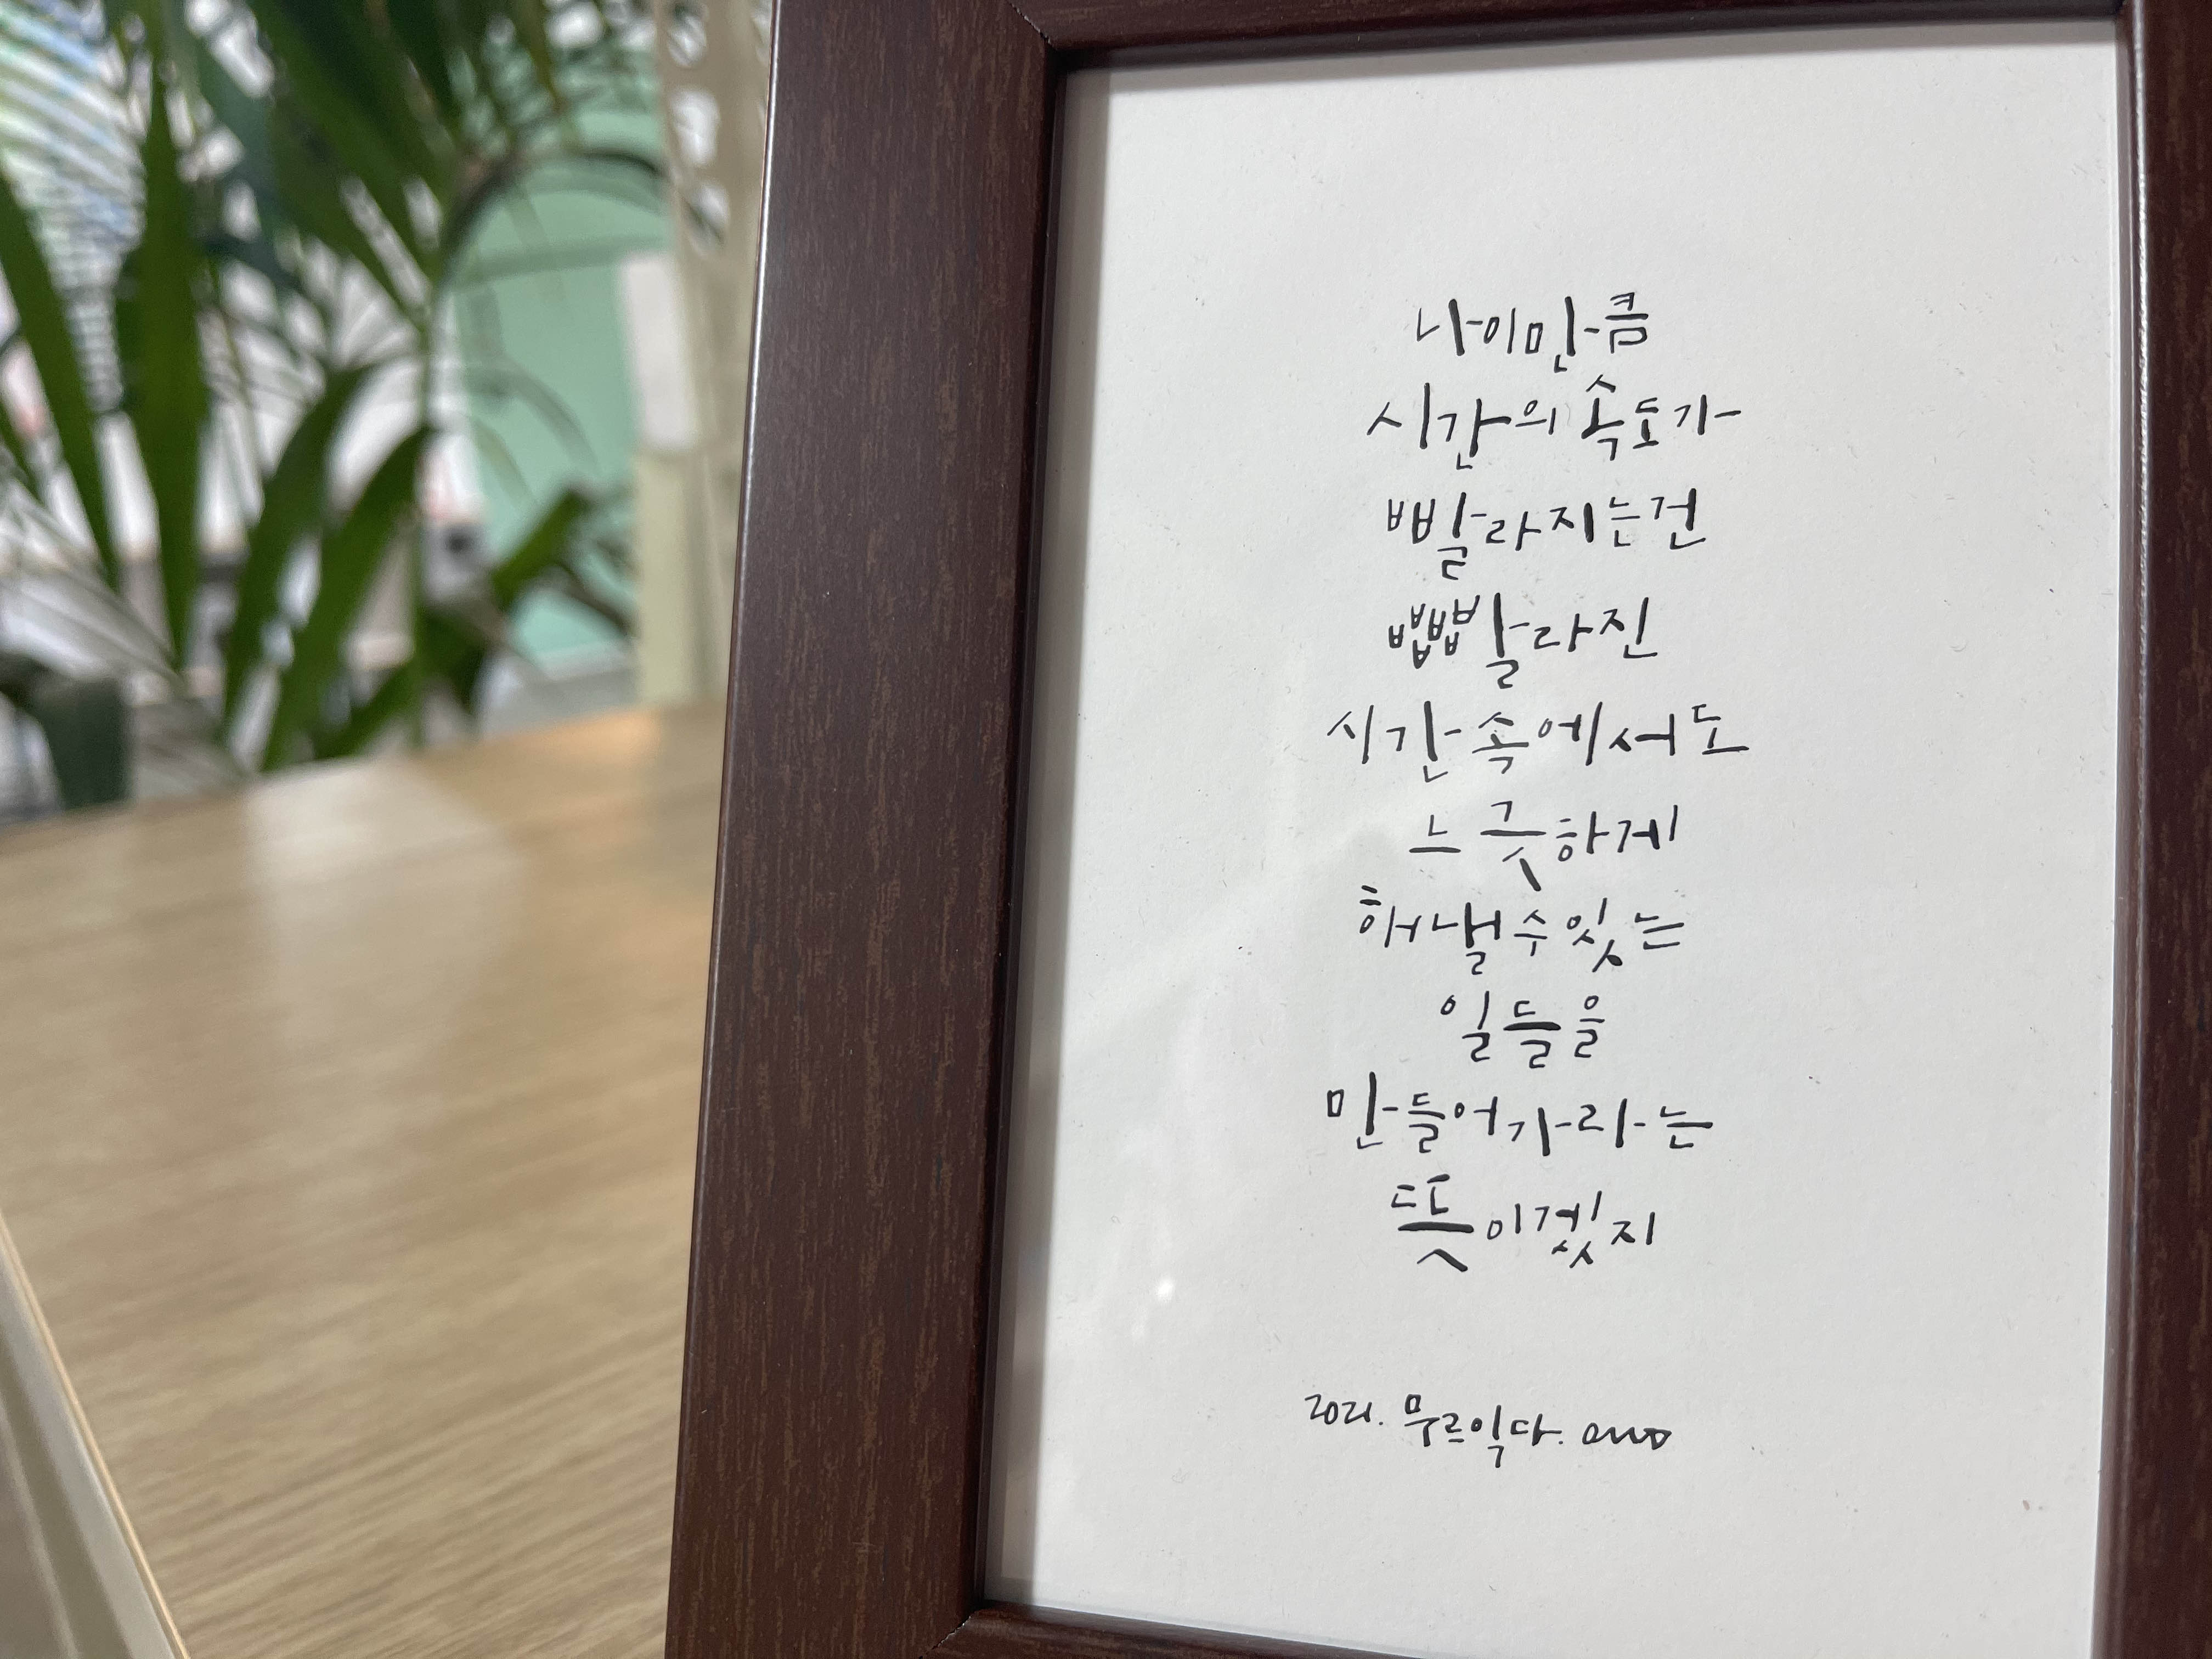 나이만큼
시간의 속도가
빨라지는건
시간 속에서도
느긋하게
해낼 수 있는
일들을
만들어가라는
뜻이겠지
2021. 무르익다.